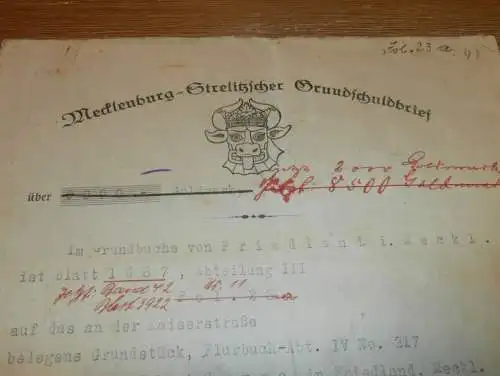 Fol. 23 a.
Mecklenburg-Strelitzscher Grundschuldbrief
jetzt 2000 Goldmark
über
jetzt 8500 Goldmark
Im Grundbuche von Friedland i. Meckl.
ist Blatt 1087, Abteilung III
jetzt: Band 42
Blatt 3922
auf das an der Kaiserstraße
belegene Grundstück, Flurbuch-Abt. IV No. 247
in Friedland, Meckl.